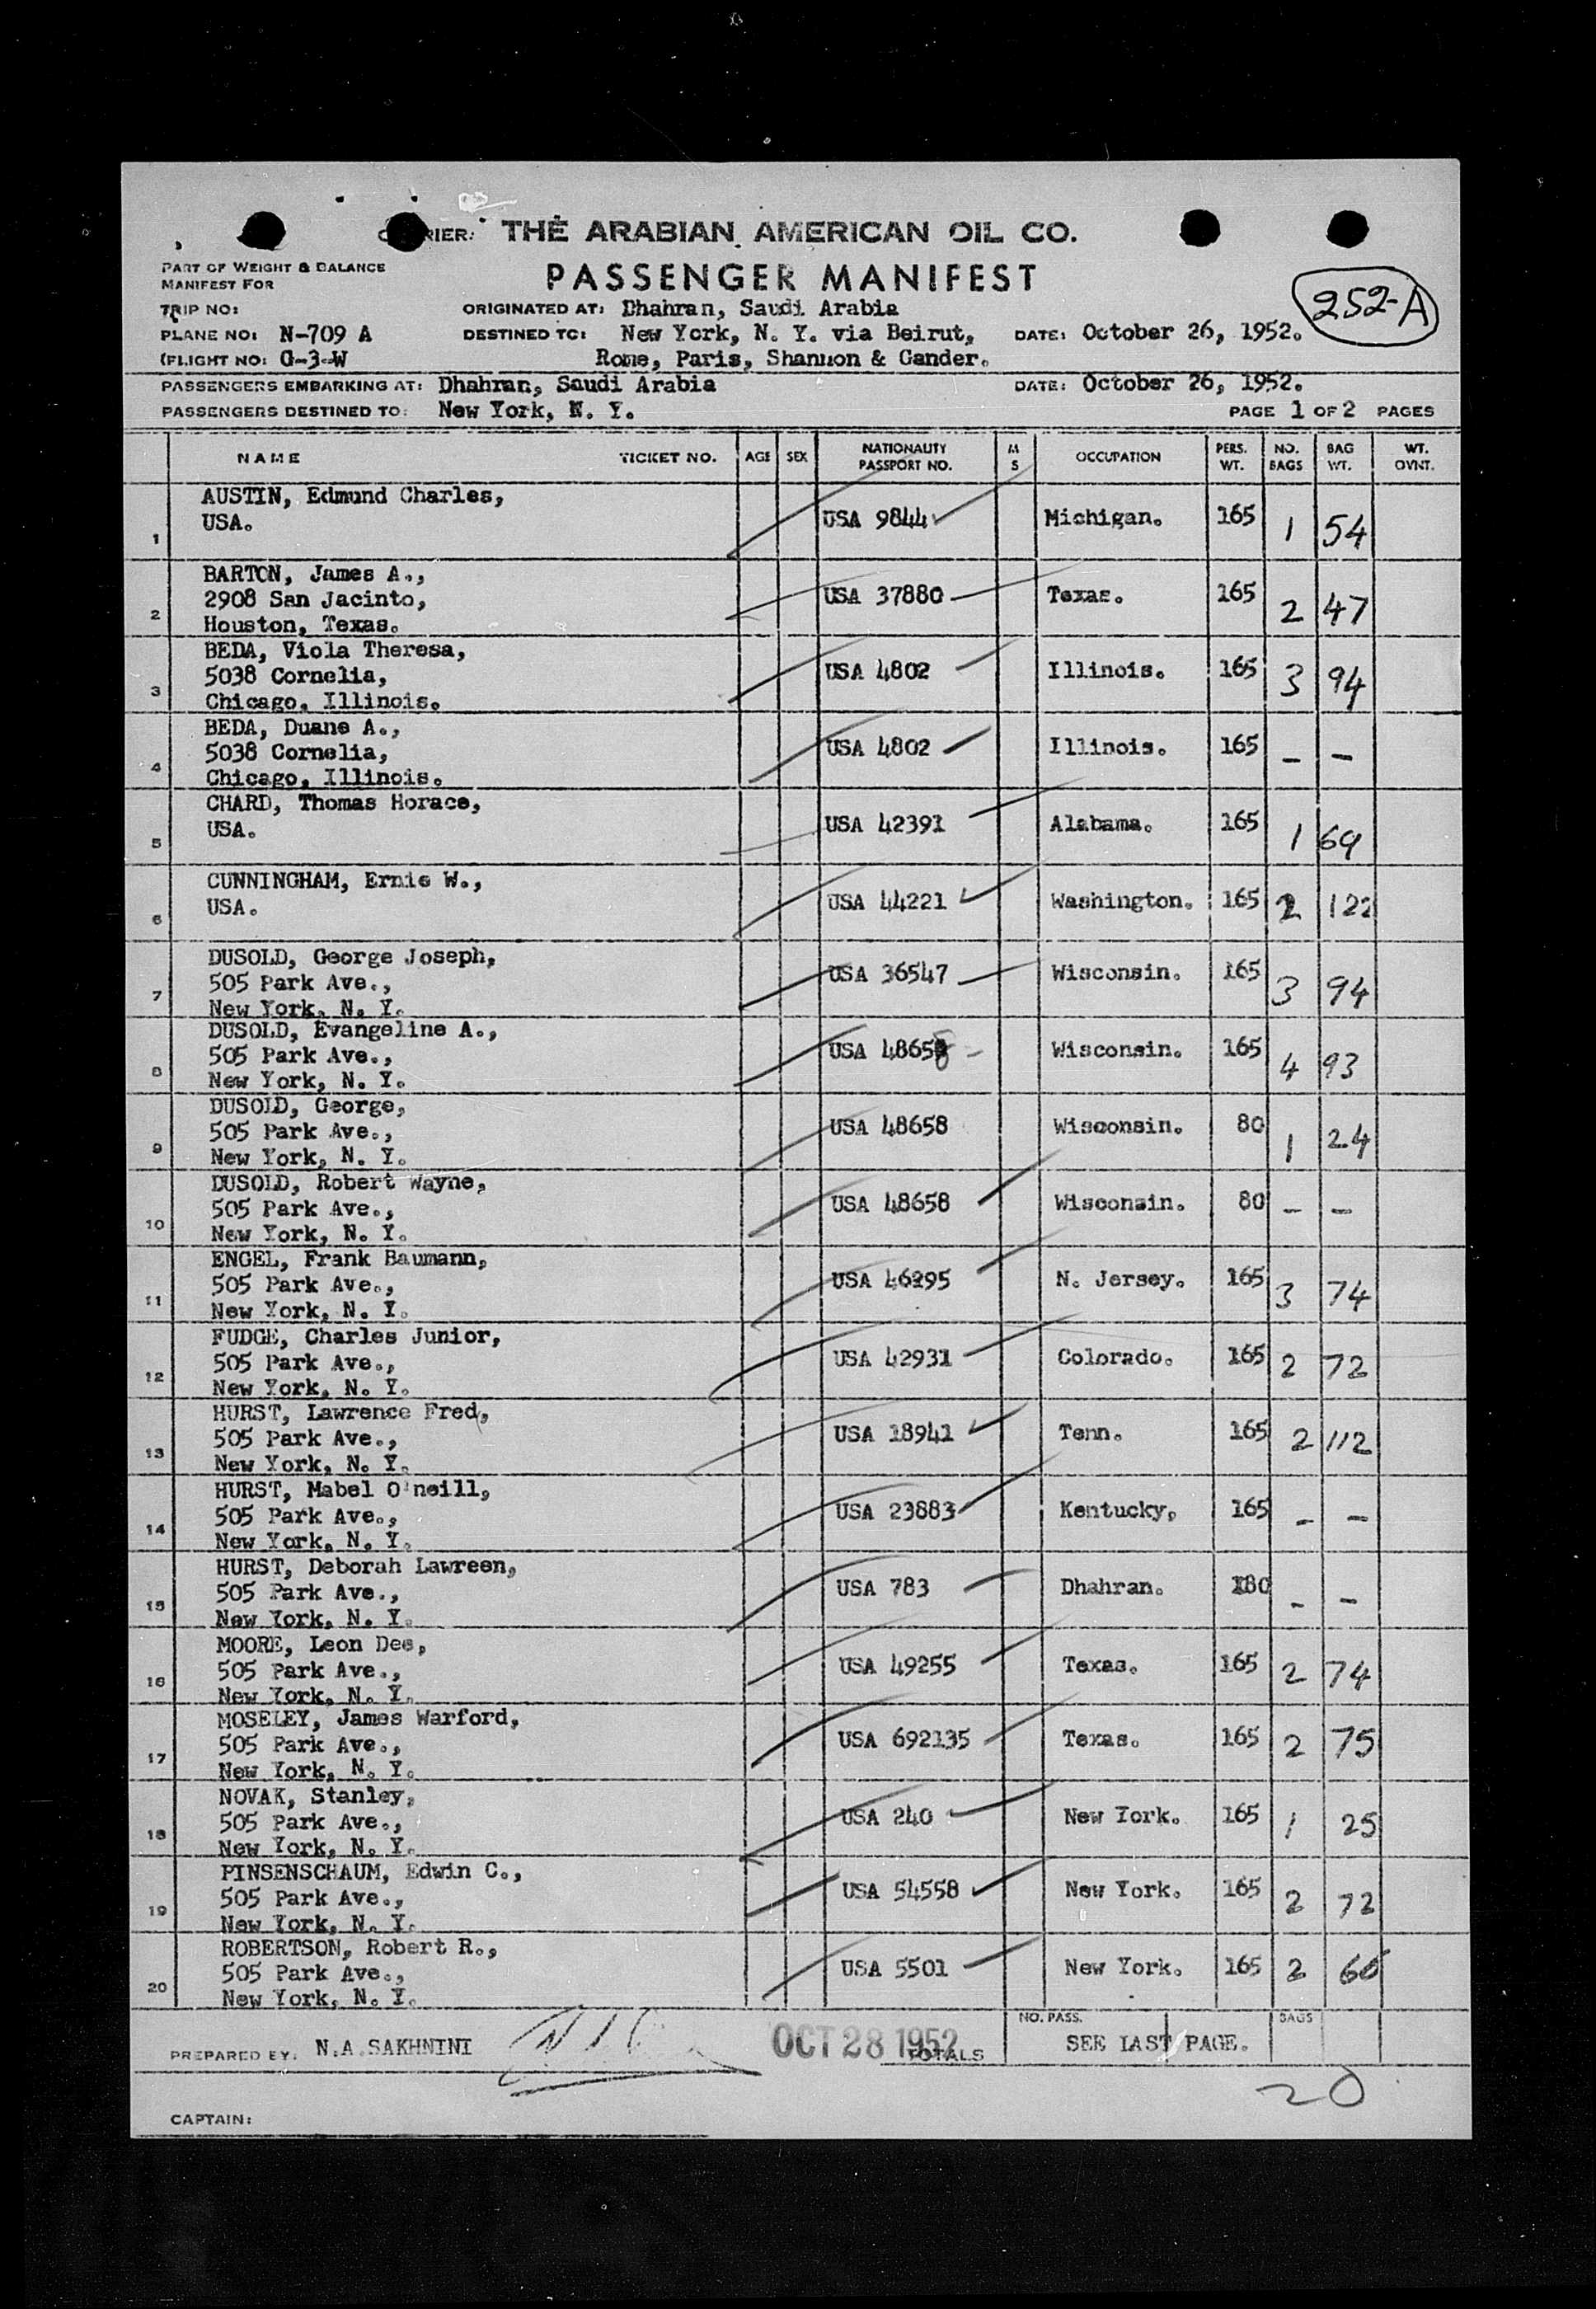 THE ARABIAN AMERICAN OIL CO.
PART OF WEIGHT & BALANCE
MANIFEST FOR
PASSENGER MANIFEST
252-A
TRIP NO:
ORIGINATED AT: Dhahran, Saudi Arabia
PLANE NO: N-709 A
DESTINED TO: New York, N. Y. via Beirut, DATE: October 26, 1952.
(FLIGHT NO: G-3-W
Rome, Paris, Shannon & Gander.
PASSENGERS EMBARKING AT: Dhahran, Saudi Arabia DATE: October 26, 1952.
PASSENGERS DESTINED TO: New York, N. Y. PAGE 1 OF 2 PAGES
NAME TICKET NO. AGE SEX NATIONALITY PASSPORT NO. M S OCCUPATION PERS. WT. NO. BAGS BAG WT. WT. OVNT.
AUSTIN, Edmund Charles,
USA. USA 9844 Michigan. 165 1 54
1
BARTON, James A.,
2908 San Jacinto, USA 37880 Texas. 165 2 47
2
Houston, Texas.
BEDA, Viola Theresa,
5038 Cornelia, USA 4802 Illinois. 165 3 94
3
Chicago, Illinois.
BEDA, Duane A.,
5038 Cornelia, USA 4802 Illinois. 165 - -
4
Chicago, Illinois.
CHARD, Thomas Horace,
USA. USA 42391 Alabama. 165 1 69
5
CUNNINGHAM, Ernie W.,
USA. USA 44221 Washington. 165 2 122
6
DUSOLD, George Joseph,
505 Park Ave., USA 36547 Wisconsin. 165 3 94
7
New York, N. Y.
DUSOLD, Evangeline A.,
505 Park Ave., USA 48658 Wisconsin. 165 4 93
8
New York, N. Y.
DUSOLD, George,
505 Park Ave., USA 48658 Wisconsin. 80 1 24
9
New York, N. Y.
DUSOLD, Robert Wayne,
505 Park Ave., USA 48658 Wisconsin. 80 - -
10
New York, N. Y.
ENGEL, Frank Baumann,
505 Park Ave., USA 46295 N. Jersey. 165 3 74
11
New York, N. Y.
FUDGE, Charles Junior,
505 Park Ave., USA 42931 Colorado. 165 2 72
12
New York, N. Y.
HURST, Lawrence Fred,
505 Park Ave., USA 18941 Tenn. 165 2 112
13
New York, N. Y.
HURST, Mabel O'neill,
505 Park Ave., USA 23883 Kentucky, 165 - -
14
New York, N. Y.
HURST, Deborah Lawreen,
505 Park Ave., USA 783 Dhahran. 80 - -
15
New York, N. Y.
MOORE, Leon Dee,
505 Park Ave., USA 49255 Texas. 165 2 74
16
New York, N. Y.
MOSELEY, James Warford,
505 Park Ave., USA 692135 Texas. 165 2 75
17
New York, N. Y.
NOVAK, Stanley,
505 Park Ave., USA 240 New York. 165 1 25
18
New York, N. Y.
PINSENSCHAUM, Edwin C.,
505 Park Ave., USA 54558 New York. 165 2 72
19
New York, N. Y.
ROBERTSON, Robert R.,
505 Park Ave., USA 5501 New York. 165 2 60
20
New York, N. Y.
NO. PASS. BAGS
PREPARED BY: N.A.SAKHNINI OCT 28 1952 TOTALS SEE LAST PAGE.
20
CAPTAIN: